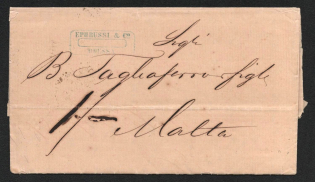 EPHRUSSI & Co
Sigri
B. Tagliaferro & figli
1/-
Malta